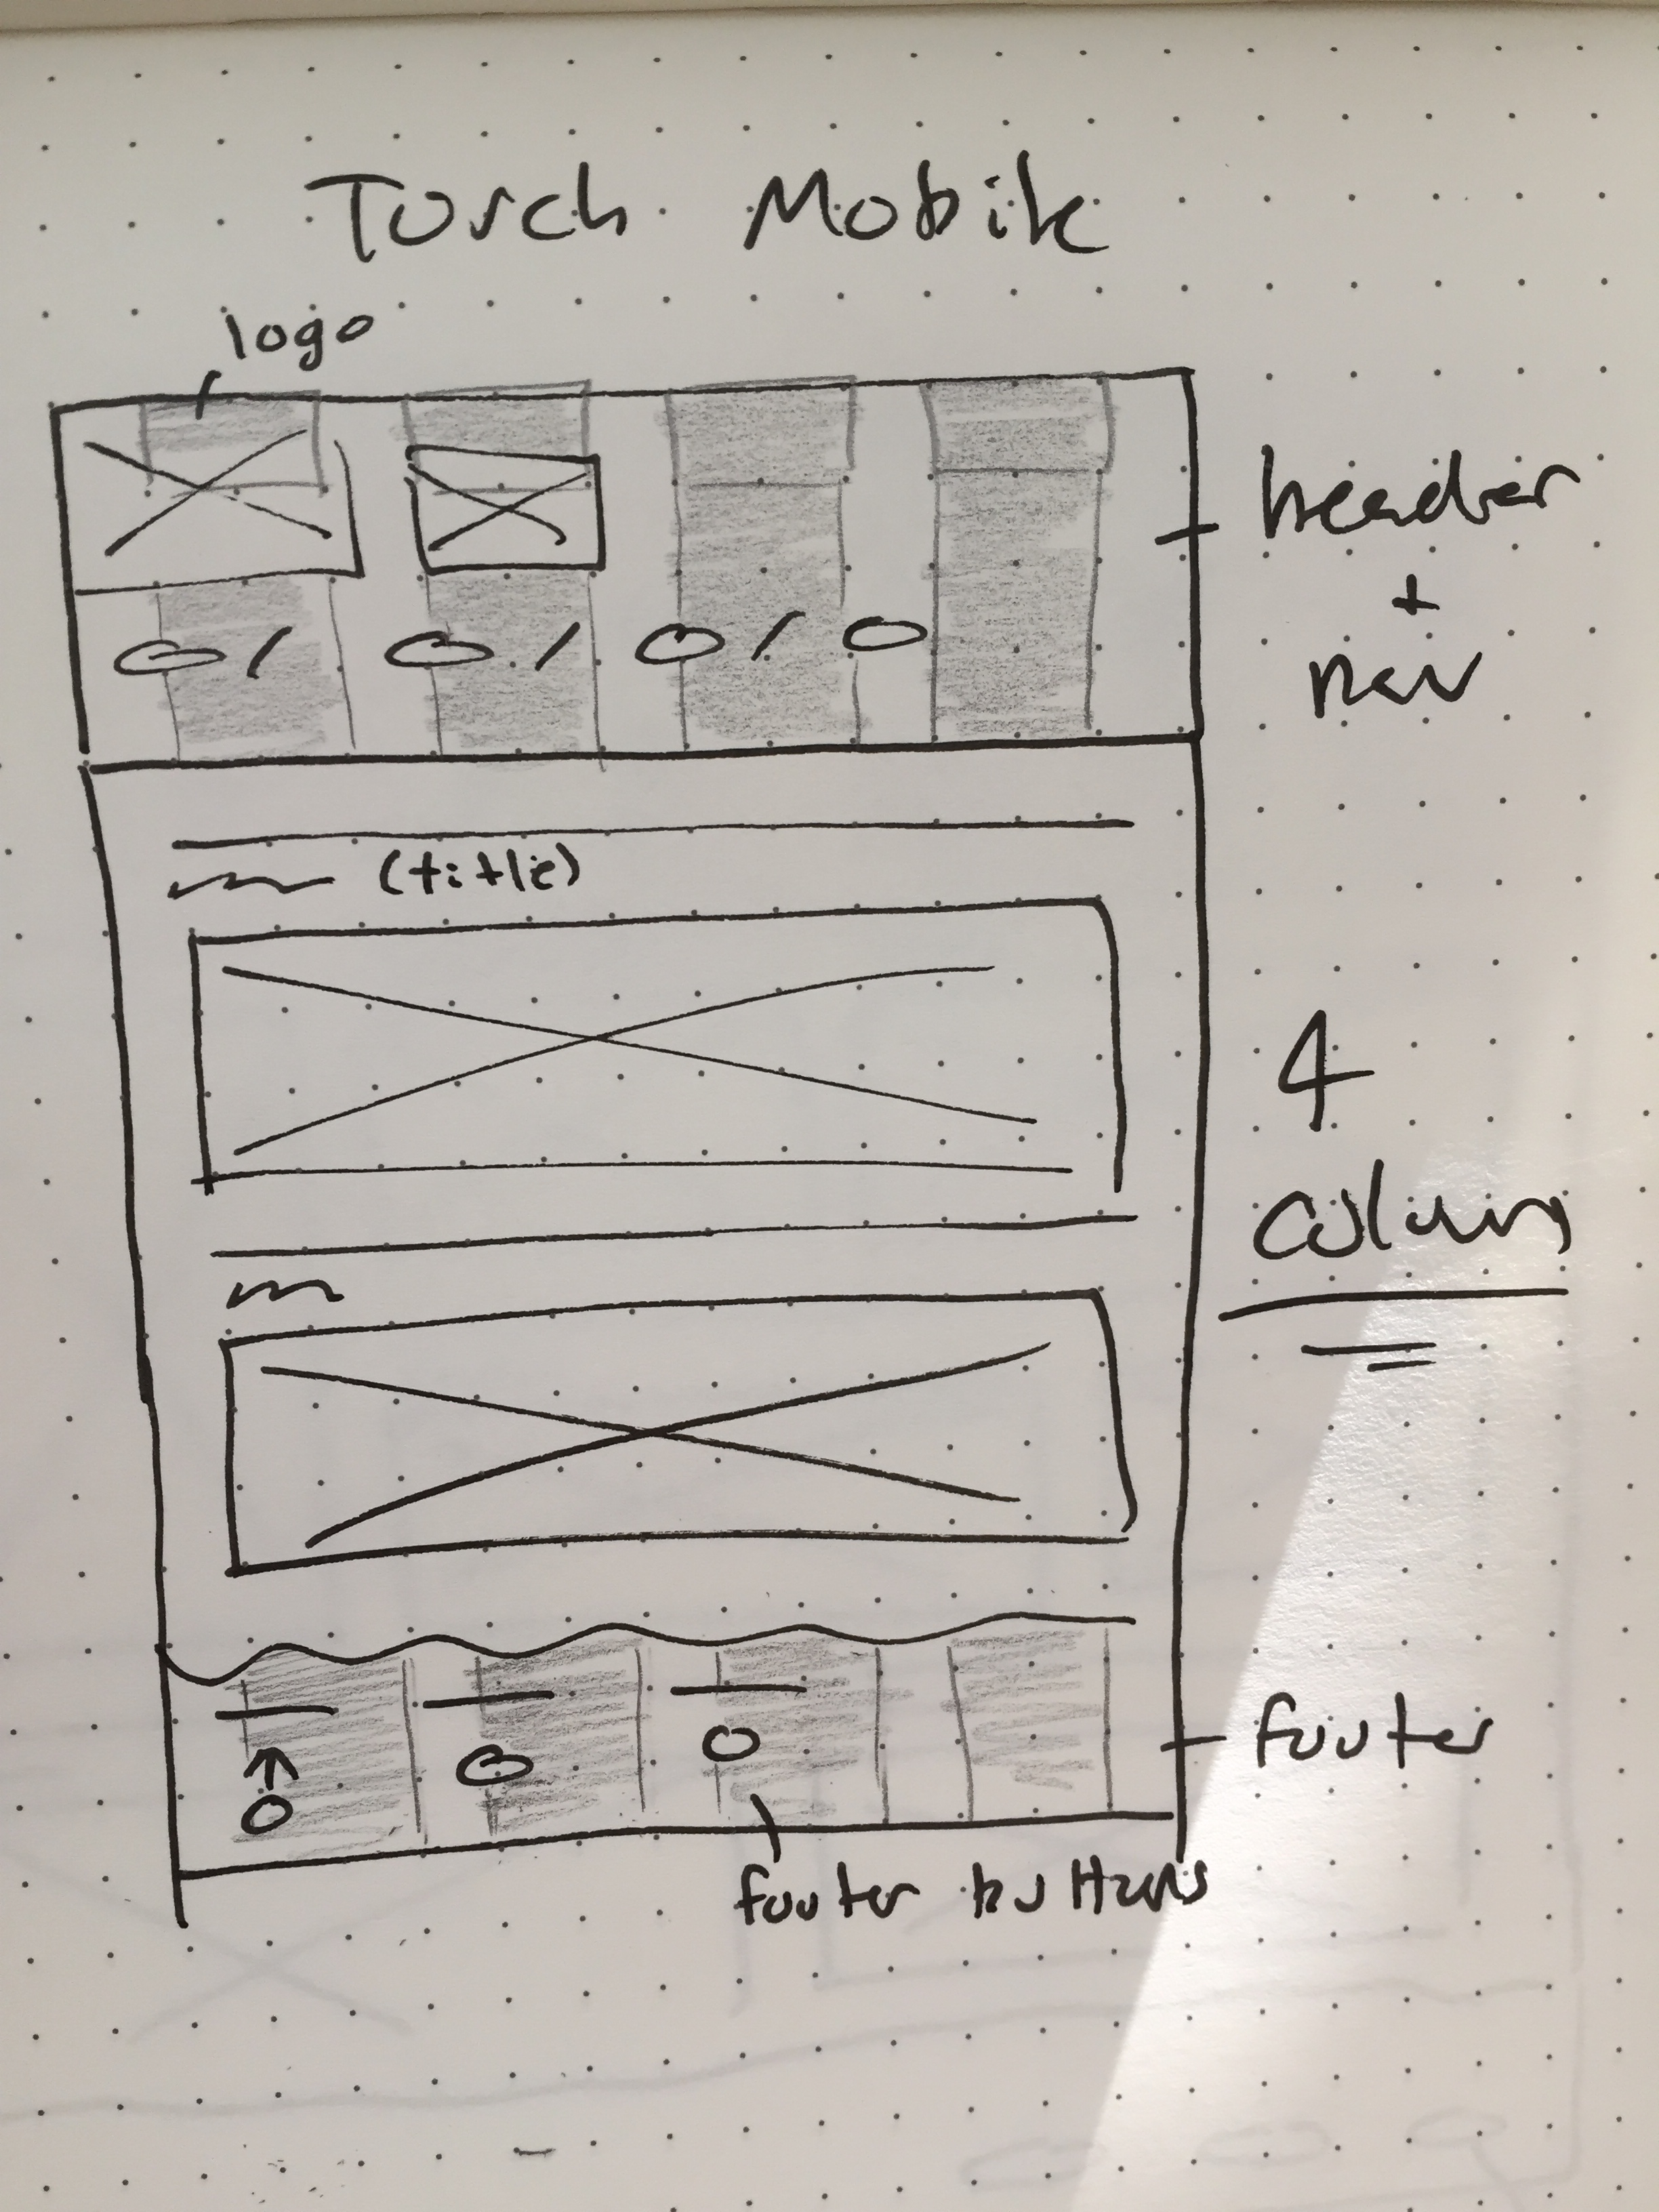 Torch Mobile
logo
header
+
nav
(title)
4
column
footer
footer buttons